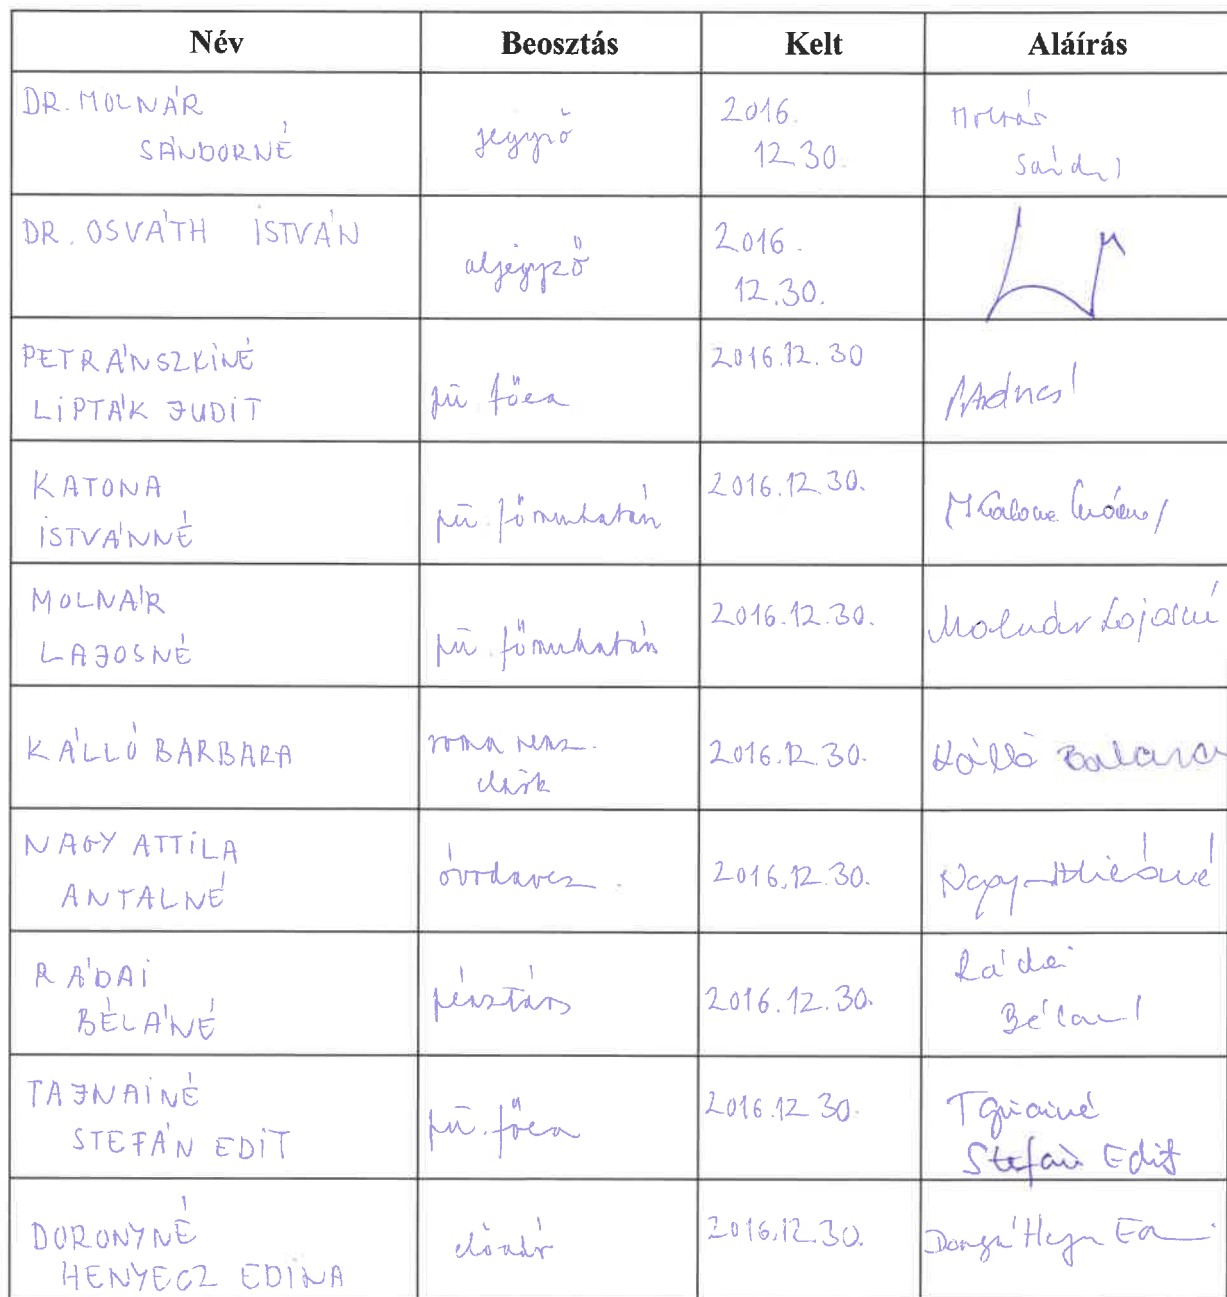 Név Beosztás Kelt Aláírás
DR. MOLNÁR
SÁNDORNÉ
jegyző
2016.
12.30.
Molnár
DR. OSVÁTH ISTVÁN
aljegyző
2016.
12.30.
PETRÁNSZKINÉ
LIPTÁK JUDIT
pü főea
2016.12.30
KATONA
ISTVÁNNÉ
pü. főmunkatárs
2016.12.30.
MOLNÁR
LAJOSNÉ
pü. főmunkatárs
2016.12.30.
Molnár Lajosné
KÁLLÓ BARBARA
roma nemz.
elnök
2016.12.30.
Kálló Barbara
NAGY ATTILA
ANTALNÉ
óvodavez.
2016.12.30.
Nagy
RÁDAI
BÉLÁNÉ
pénztáros
2016.12.30.
Rádai
Béláné
TAJNAINÉ
STEFÁN EDIT
pü. főea
2016.12.30.
Tajnainé
Stefán Edit
DORONYNÉ
HENYECZ EDINA
előadó
2016.12.30.